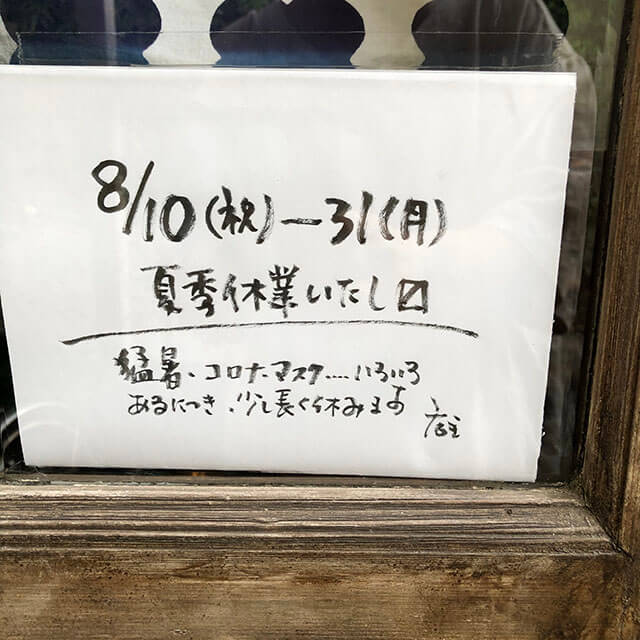 8/10(祝)ー31(月)
夏季休業いたし〼
猛暑、コロナ、マスク……いろいろ
あるにつき、少し長く休みます
店主